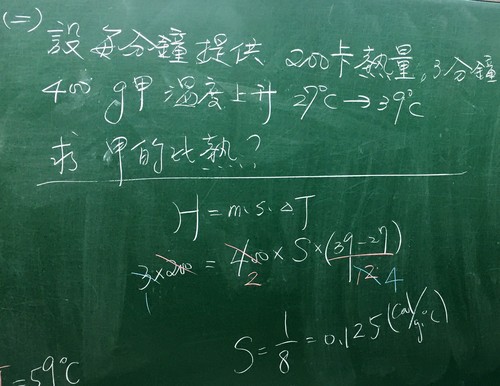 (二)
設每分鐘提供 200卡熱量,3分鐘
400 g甲溫度上升 27℃→39℃
求甲的比熱?
H=m.s.△T
3×200 = 400×S×(39-27)
1 2 12 4
S=1/8=0.125(cal/g℃)
=59℃